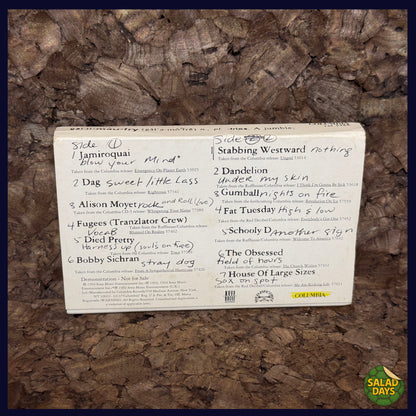 Side 1
1 Jamiroquai
Blow your Mind
Taken from the Columbia release: Emergency On Planet Earth 53825
2 Dag Sweet little Lass
Taken from the Columbia release: Righteous
3 Alison Moyet Rock and Roll (live)
4 Fugees (Tranzlator Crew)
Vocab
Taken from the Ruffhouse/Columbia release:
Blunted On Reality
5 Died Pretty
Harness up (souls on fire)
Taken from the Columbia release: Trace
6 Bobby Sichran stray dog
Taken from the Columbia release: From A Sympathetical Hurricane
Demonstration - Not for Sale
Side 2
Stabbing Westward nothing
Taken from the Columbia release: Ungod
2 Dandelion
under my skin
Taken from the Ruffhouse/Columbia release: I Think I'm Gonna Be Sick
3 Gumball rights on fire
Taken from the forthcoming Columbia release: Revolution On Ice
4 Fat Tuesday High & low
Taken from the Red Decibel/Columbia release: Everybody's Got One
5 Schooly D Another sign
Taken from the Ruffhouse/Columbia release: Welcome To America
6 The Obsessed
field of hours
Taken from the Columbia release: The Church Within
7 House Of Large Sizes
Sox on spot
Taken from the Red Decibel/Columbia release: My Ass-Kicking Life
COLUMBIA
SALAD
DAYS